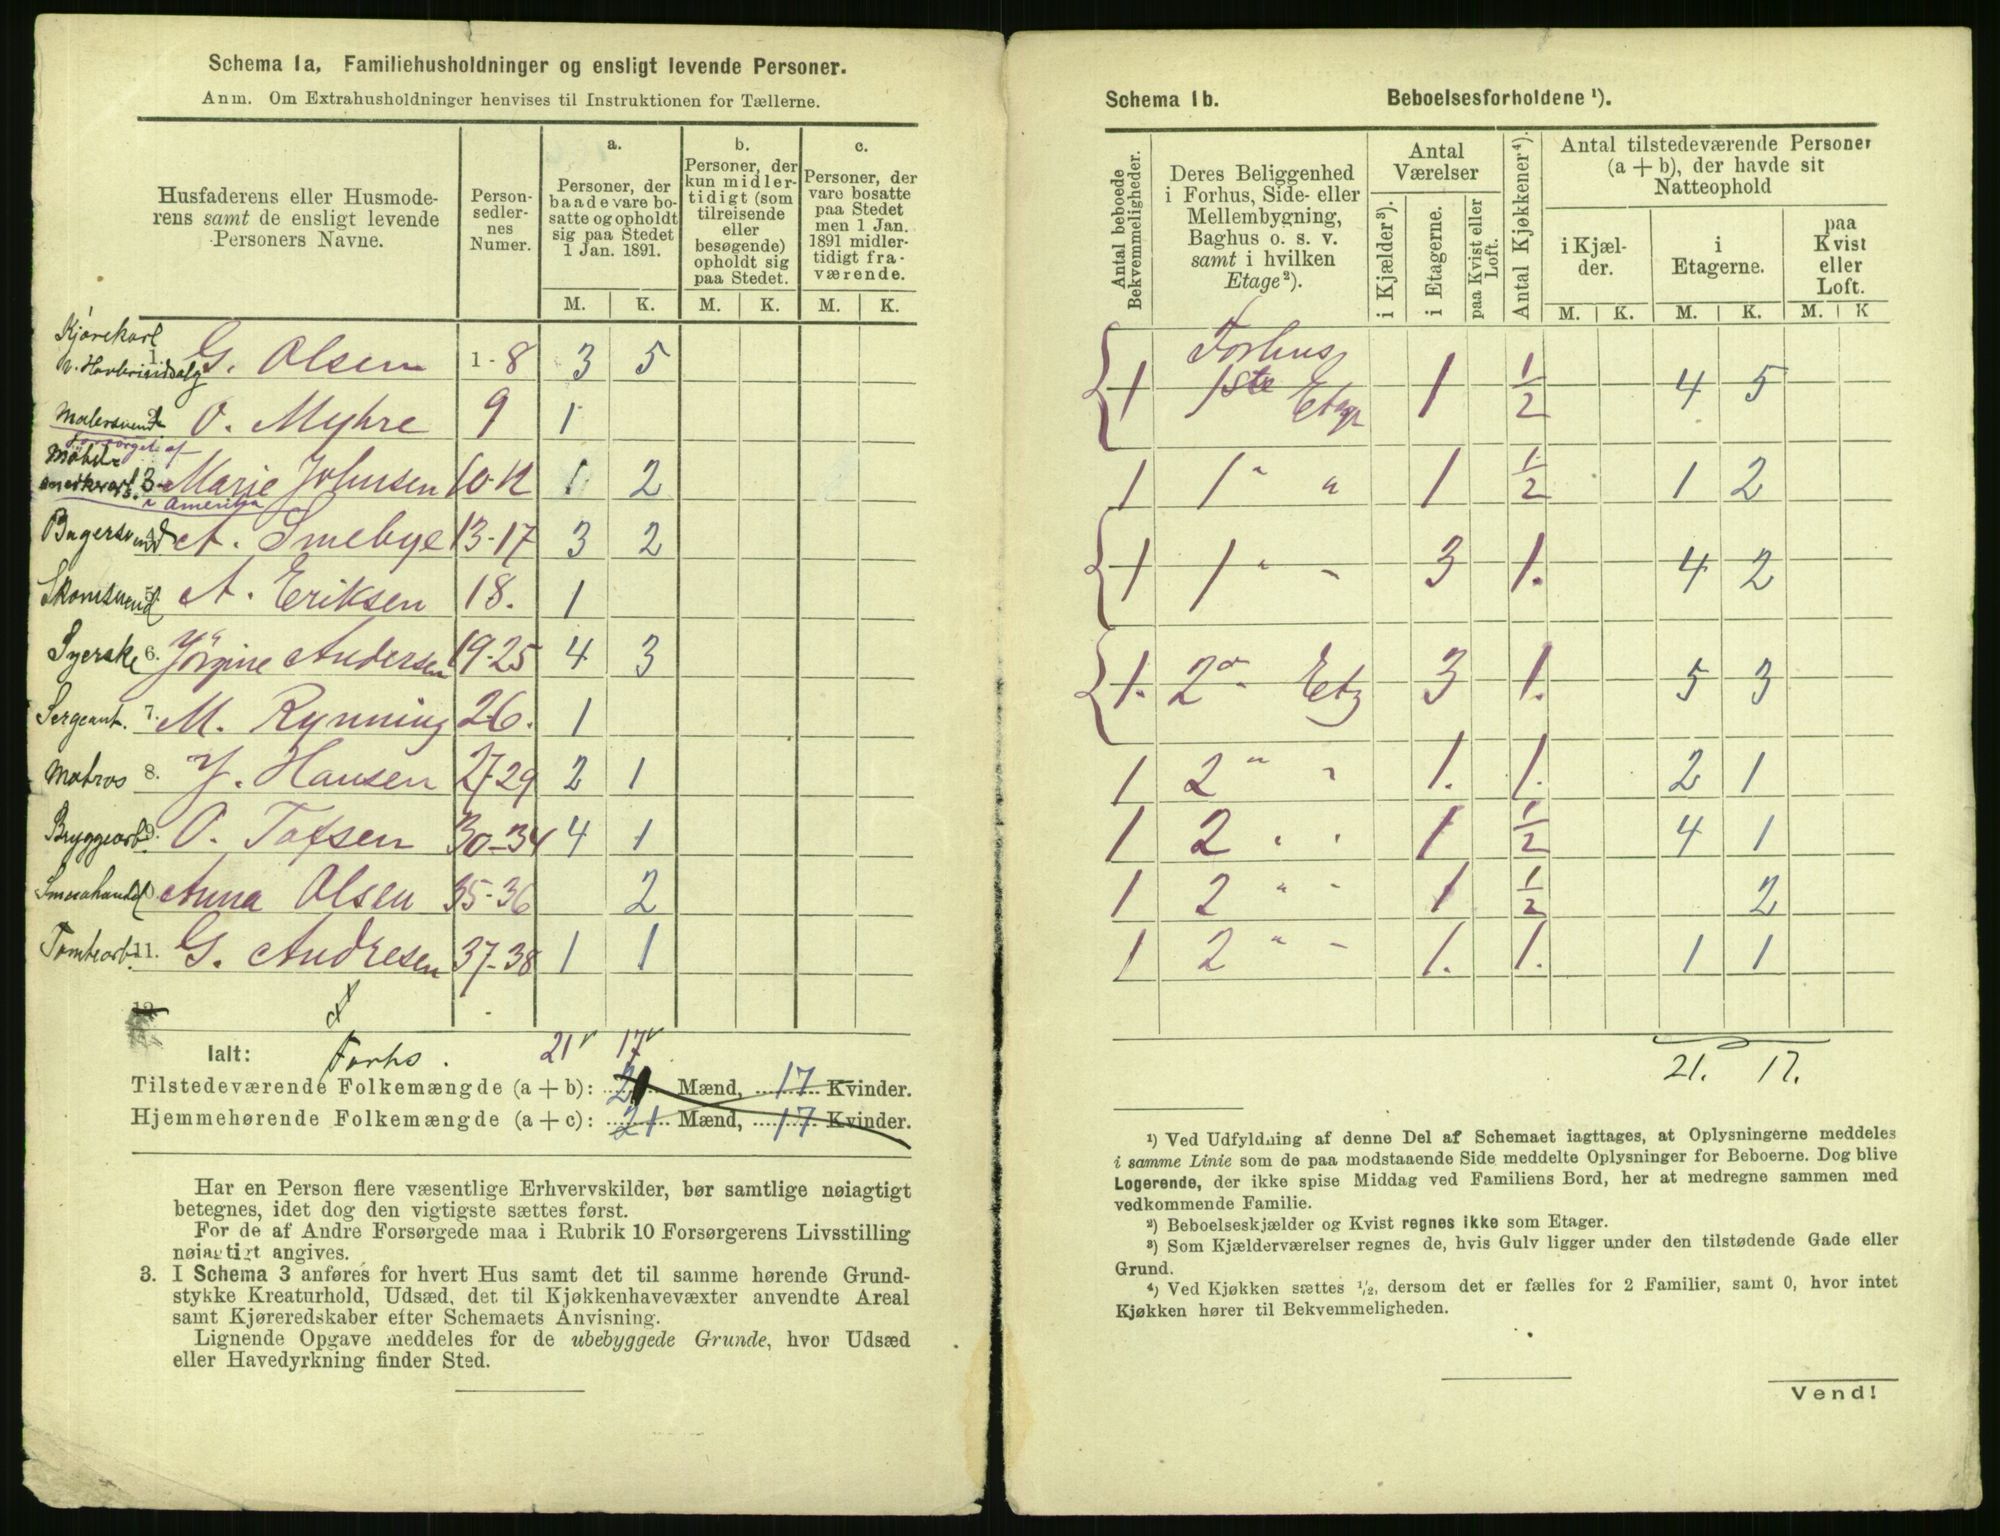 Schema 1a, Familiehusholdninger og ensligt levende Personer.
Anm. Om Extrahusholdninger henvises til Instruktionen for Tællerne.
Husfaderens eller Husmoderens samt de ensligt levende Personers Navne.
Personsedlernes Numer.
a. Personer, der baade vare bosatte og opholdt sig paa Stedet 1 Jan. 1891.
b. Personer, der kun midlertidigt (som tilreisende eller besøgende) opholdt sig paa Stedet.
c. Personer, der vare bosatte paa Stedet men 1 Jan. 1891 midlertidigt fraværende.
M. K. M. K. M. K.
Kjørekarl
1. G. Olsen 1-8 3 5
Malersvend 2. O. Myhre 9 1
forsørget af
Møbelsnedkerarb. 3. Marie Johnsen 10-12 1 2
i Amerika
Bagersvend A. Smebye 13-17 3 2
Skomsvend 5. A. Eriksen 18. 1
Syerske 6. Jörgine Andersen 19-25 4 3
Sergeant. 7. M. Rynning 26. 1
Matros 8. J. Hansen 27-29 2 1
Bryggearb. 9. O. Tofsen 30-34 4 1
Smaahandel Anna Olsen 35-36 2
Tomtearb. 11. G. Andresen 37-38 1 1
12.
Ialt: Forhs. 21 17
Tilstedeværende Folkemængde (a + b): 21 Mænd, 17 Kvinder.
Hjemmehørende Folkemængde (a + c): 21 Mænd, 17 Kvinder.
Har en Person flere væsentlige Erhvervskilder, bør samtlige nøiagtigt
betegnes, idet dog den vigtigste sættes først.
For de af Andre Forsørgede maa i Rubrik 10 Forsørgerens Livsstilling
nøiagtigt angives.
3. I Schema 3 anføres for hvert Hus samt det til samme hørende Grund-
stykke Kreaturhold, Udsæd, det til Kjøkkenhavevæxter anvendte Areal
samt Kjøreredskaber efter Schemaets Anvisning.
Lignende Opgave meddeles for de ubebyggede Grunde, hvor Udsæd
eller Havedyrkning finder Sted.
Schema 1b. Beboelsesforholdene ¹).
Antal beboede Bekvemmeligheder.
Deres Beliggenhed i Forhus, Side- eller Mellembygning, Baghus o. s. v. samt i hvilken Etage ²).
Antal Værelser
i Kjælder ³).
i Etagerne.
paa Kvist eller Loft.
Antal Kjøkkener ⁴).
Antal tilstedeværende Personer (a + b), der havde sit Natteophold
i Kjælder.
i Etagerne.
paa Kvist eller Loft.
M. K. M. K. M. K
1 Forhus 1ste Etage 1 1/2 4 5
1 1 " " 1 1/2 1 2
1 1 " " 3 1. 4 2
1. 2 " Etg 3 1. 5 3
1 2 " " 1. 1. 2 1
1 2 " " 1 1/2 4 1
1 2 " " 1 1/2 2
1 2 " " 1. 1. 1 1
21. 17.
¹) Ved Udfyldning af denne Del af Schemaet iagttages, at Oplysningerne meddeles
i samme Linie som de paa modstaaende Side meddelte Oplysninger for Beboerne. Dog blive
Logerende, der ikke spise Middag ved Familiens Bord, her at medregne sammen med
vedkommende Familie.
²) Beboelseskjælder og Kvist regnes ikke som Etager.
³) Som Kjælderværelser regnes de, hvis Gulv ligger under den tilstødende Gade eller
Grund.
⁴) Ved Kjøkken sættes ½, dersom det er fælles for 2 Familier, samt 0, hvor intet
Kjøkken hører til Bekvemmeligheden.
Vend!